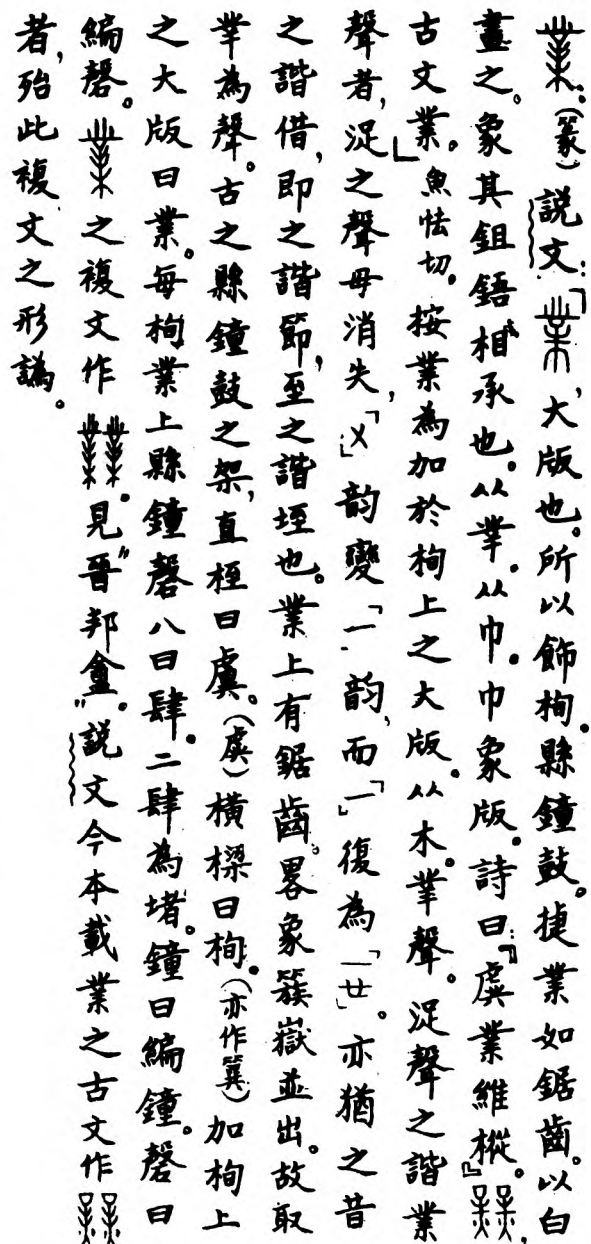 (篆)說文:「大版也。所以飾栒縣鐘鼓。捷業如鋸齒。以白
畫之。象其鉏鋙相承也。从丵。从巾。巾象版。詩曰:『虡業維樅。』
古文業。」魚怯切。按業為加於栒上之大版。从木。丵聲。浞聲之諧業
聲者,浞之聲母消失,「ㄨ」韵變「一」韵,而「一」復為「廿」。亦猶之昔
之諧借,即之諧節,至之諧垤也。業上有鋸齒。畧象簇嶽並出。故取
丵為聲。古之縣鐘鼓之架,直桎曰虡。(虞)橫樑曰栒。(亦作簨)加栒上
之大版曰業。每栒業上縣鐘磬八曰肆。二肆為堵。鐘曰編鐘。磬曰
編磬。之複文作。見"晉邦盦"。說文今本載業之古文作
者,殆此複文之形譌。